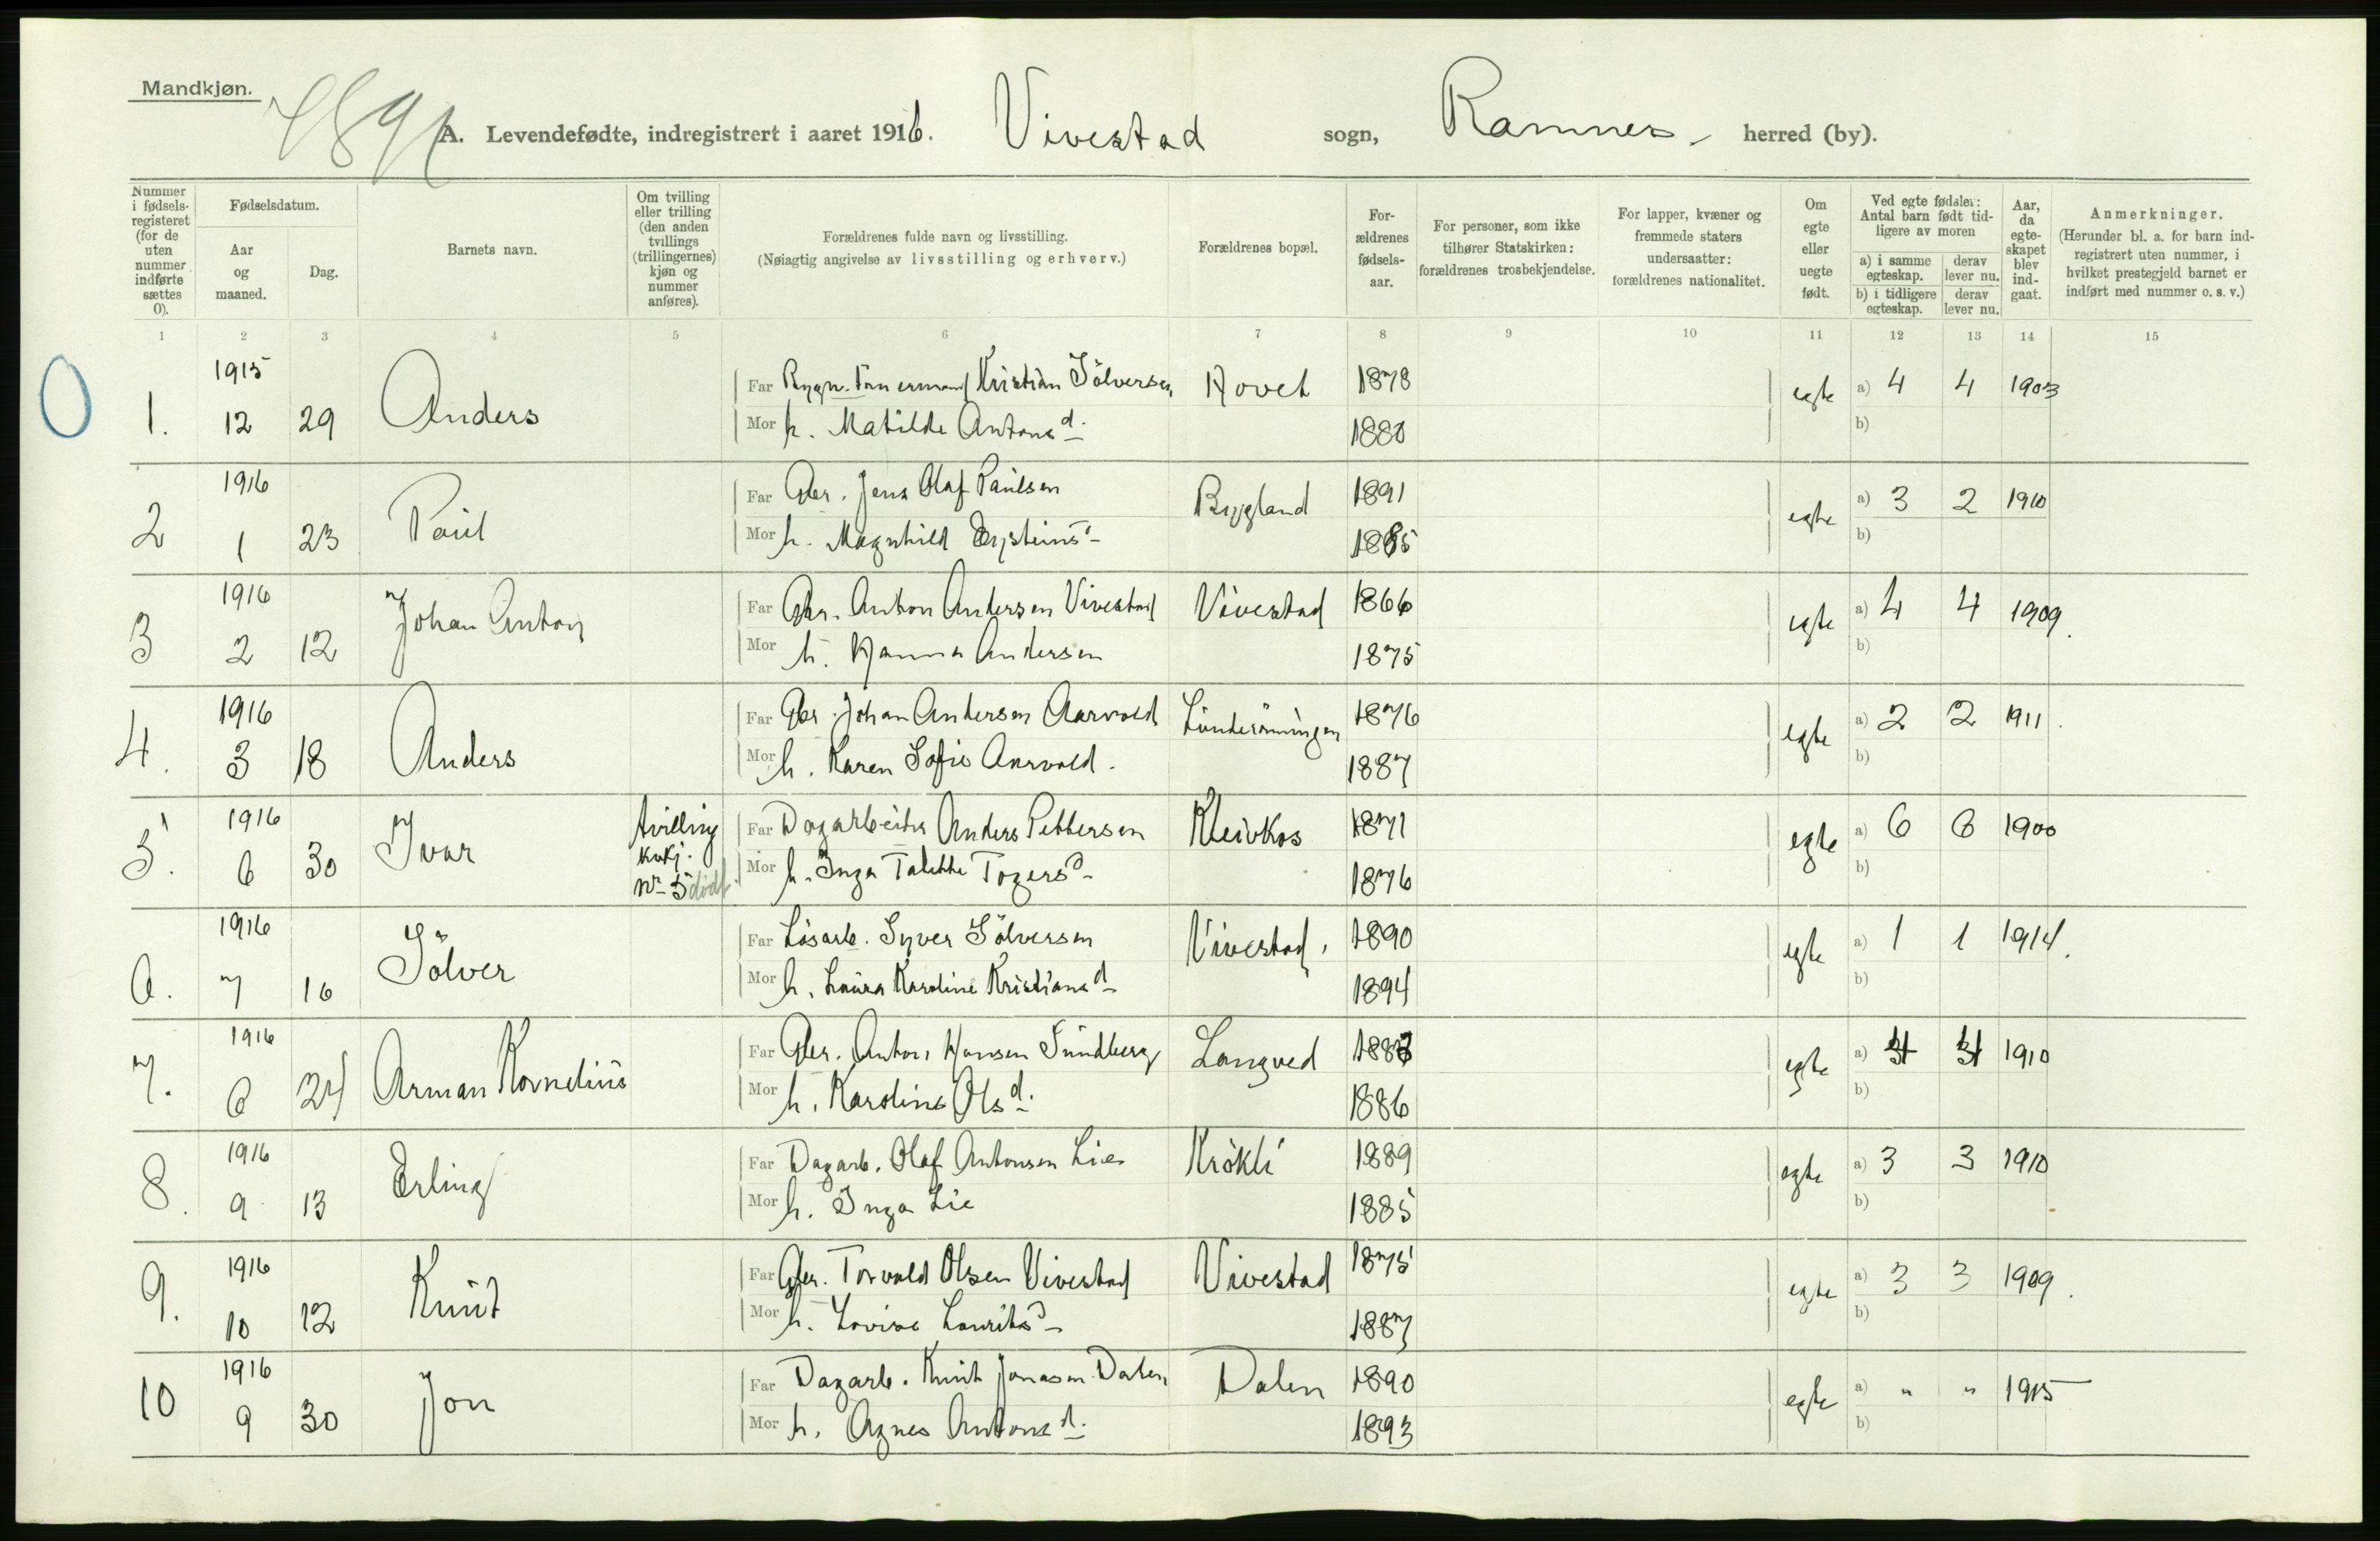 Mandkjøn.
A. Levendefødte, indregistrert i aaret 1916. Vivestad sogn, Ramnes herred (by).
Nummer i fødsels-registeret (for de uten nummer indførte sættes 0).
Fødselsdatum.
Aar og maaned.
Dag.
Barnets navn.
Om tvilling eller trilling (den anden tvillings (trillingernes) kjøn og nummer anføres).
Forældrenes fulde navn og livsstilling.
(Nøiagtig angivelse av livsstilling og erhverv.)
Forældrenes bopæl.
For-ældrenes fødsels-aar.
For personer, som ikke tilhører Statskirken: forældrenes trosbekjendelse.
For lapper, kvæner og fremmede staters undersaatter: forældrenes nationalitet.
Om egte eller uegte født.
Ved egte fødsler: Antal barn født tid-ligere av moren
a) i samme egteskap.
derav lever nu.
b) i tidligere egteskap.
derav lever nu.
Aar, da egte-skapet blev ind-gaat.
Anmerkninger.
(Herunder bl. a. for barn ind-registrert uten nummer, i hvilket prestegjeld barnet er indført med nummer o. s. v.)
1 2 3 4 5 6 7 8 9 10 11 12 13 14 15
0
1. 1915 12 29 Anders Far Kristian Sölversen Hovet 1878 egte a) 4 4 1903
Mor h. Matilde Antonsd. 1880 b)
2 1916 1 23 Paul Far Gbr. Jens Olaf Paulsen Bygland 1891 egte a) 3 2 1910
Mor h. Magnhild Eysteinsd. 1885 b)
3 1916 2 12 Johan Anton Far Gbr. Anton Andersen Vivestad Vivestad 1866 egte a) 4 4 1909.
Mor h. Hanna Andersen 1875 b)
4. 1916 3 18 Anders Far Gbr. Johan Andersen Aarvold 1876 egte a) 2 2 1911.
Mor h. Karen Sofie Aarvold. 1887 b)
5. 1916 6 30 Ivar tvilling kvkj. nr 5 dödf. Far Dagarbeider Anders Pettersen Kleivkas 1871 egte a) 6 6 1900
Mor h. Inga Talette Togersd. 1876 b)
6. 1916 7 16 Sölver Far Lösarb. Syver Sölversen Vivestad. 1890 egte a) 1 1 1914.
Mor h. Laura Karoline Kristiansd. 1894 b)
7. 1916 6 24 Arman Kornelius Far Gbr. Anton Hansen Sundberg Langved 1883 egte a) 4 4 1910
Mor h. Karoline Olsd. 1886 b)
8. 1916 9 13 Erling Far Dagarb. Olaf Antonsen Lie Krökli 1889 egte a) 3 3 1910
Mor h. Inga Lie 1885 b)
9. 1916 10 12 Knut Far Gbr. Torvald Olsen Vivestad Vivestad 1875 egte a) 3 3 1909.
Mor h. Lovise Lauritsd. 1887 b)
10 1916 9 30 Jon Far Dagarb. Knut Jonasen Dalen Dalen 1890 egte a) " " 1915
Mor h. Agnes Antonsd. 1893 b)